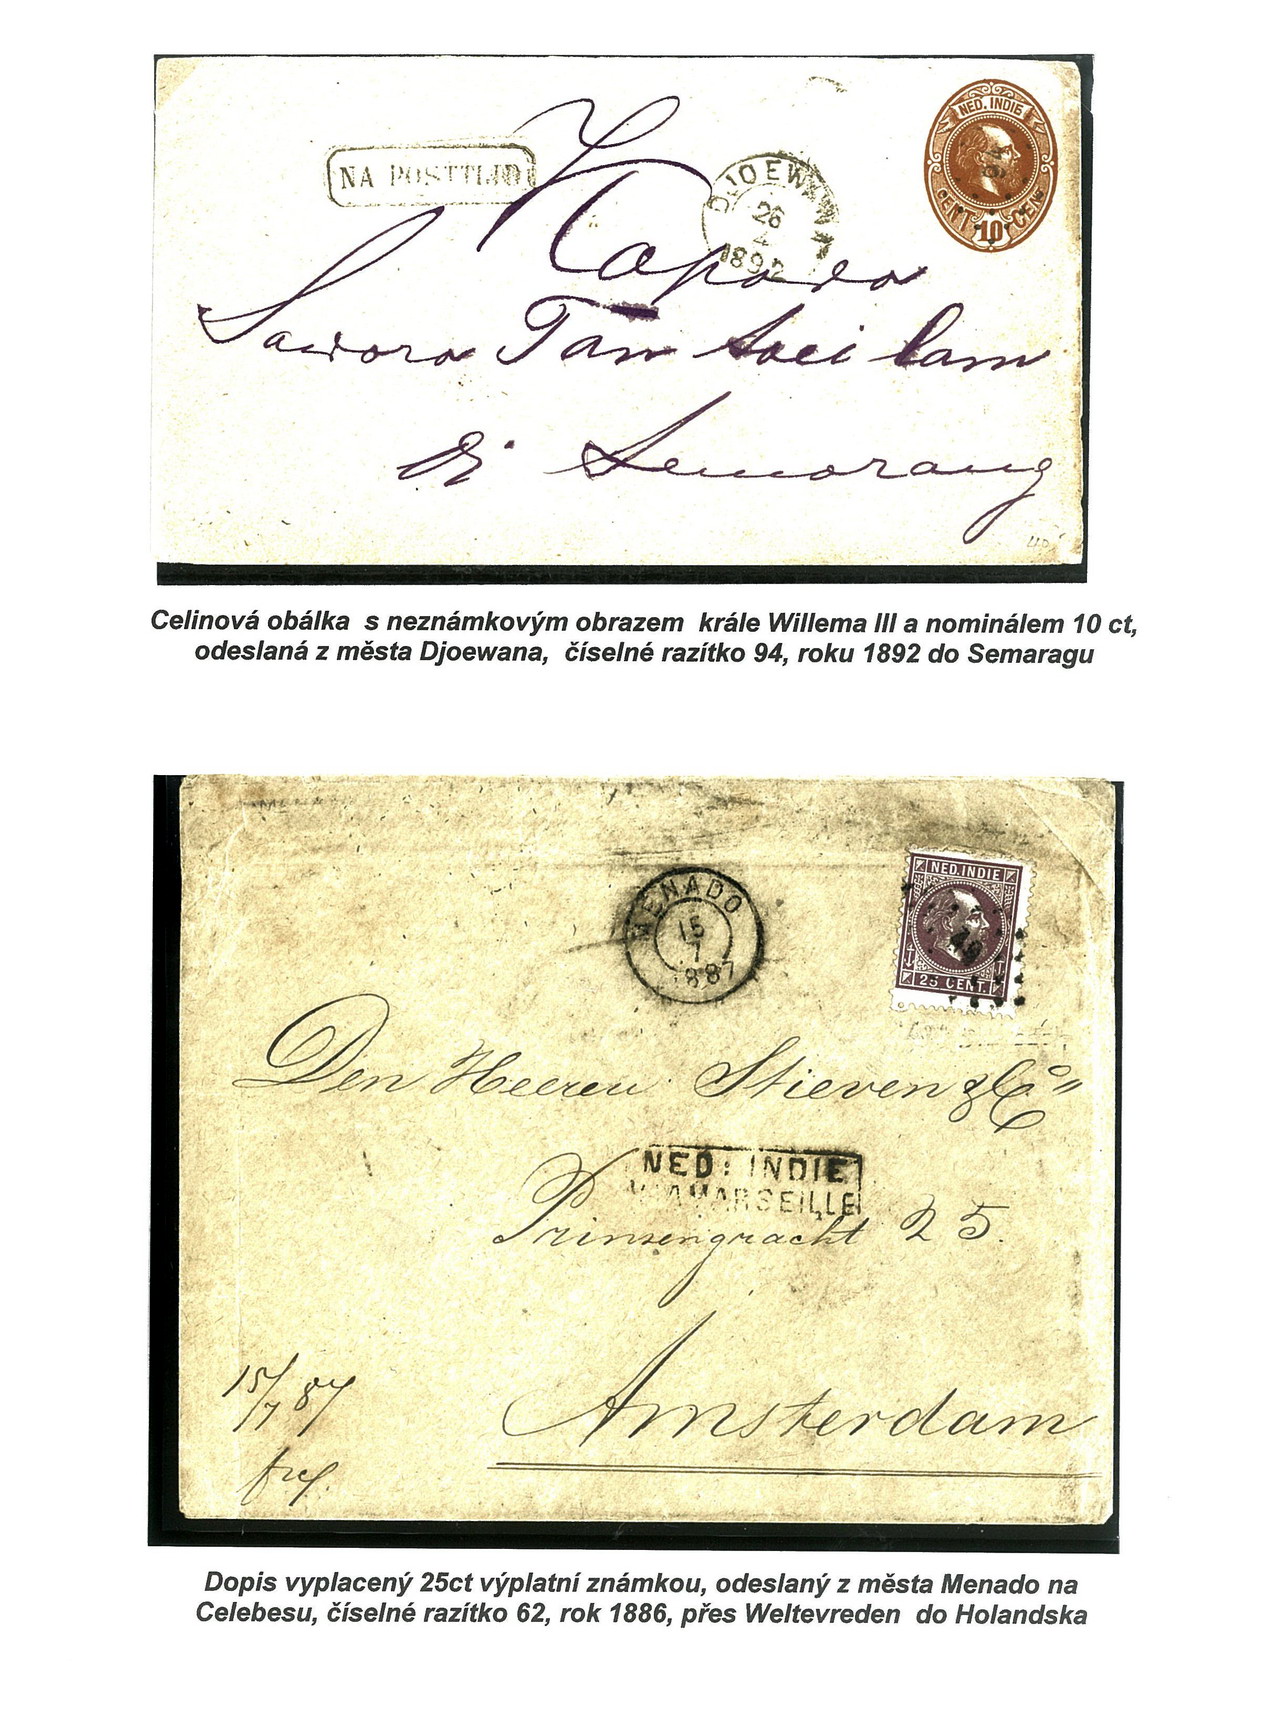 NED. INDIE
CENT 10 CENT
NA POSTTIJD
DJOEWANA
26
1892
Kapada
Sawora Tan Soei Lam
di Semarang
Celinová obálka s neznámkovým obrazem krále Willema III a nominálem 10 ct,
odeslaná z města Djoewana, číselné razítko 94, roku 1892 do Semaragu
NED. INDIE
25 CENT.
MENADO
15
7
1887
Den Heeren Stieven & Co
NED: INDIE
VIA MARSEILLE
Prinsengracht 25.
15/7 87
Amsterdam
Dopis vyplacený 25ct výplatní známkou, odeslaný z města Menado na
Celebesu, číselné razítko 62, rok 1886, přes Weltevreden do Holandska